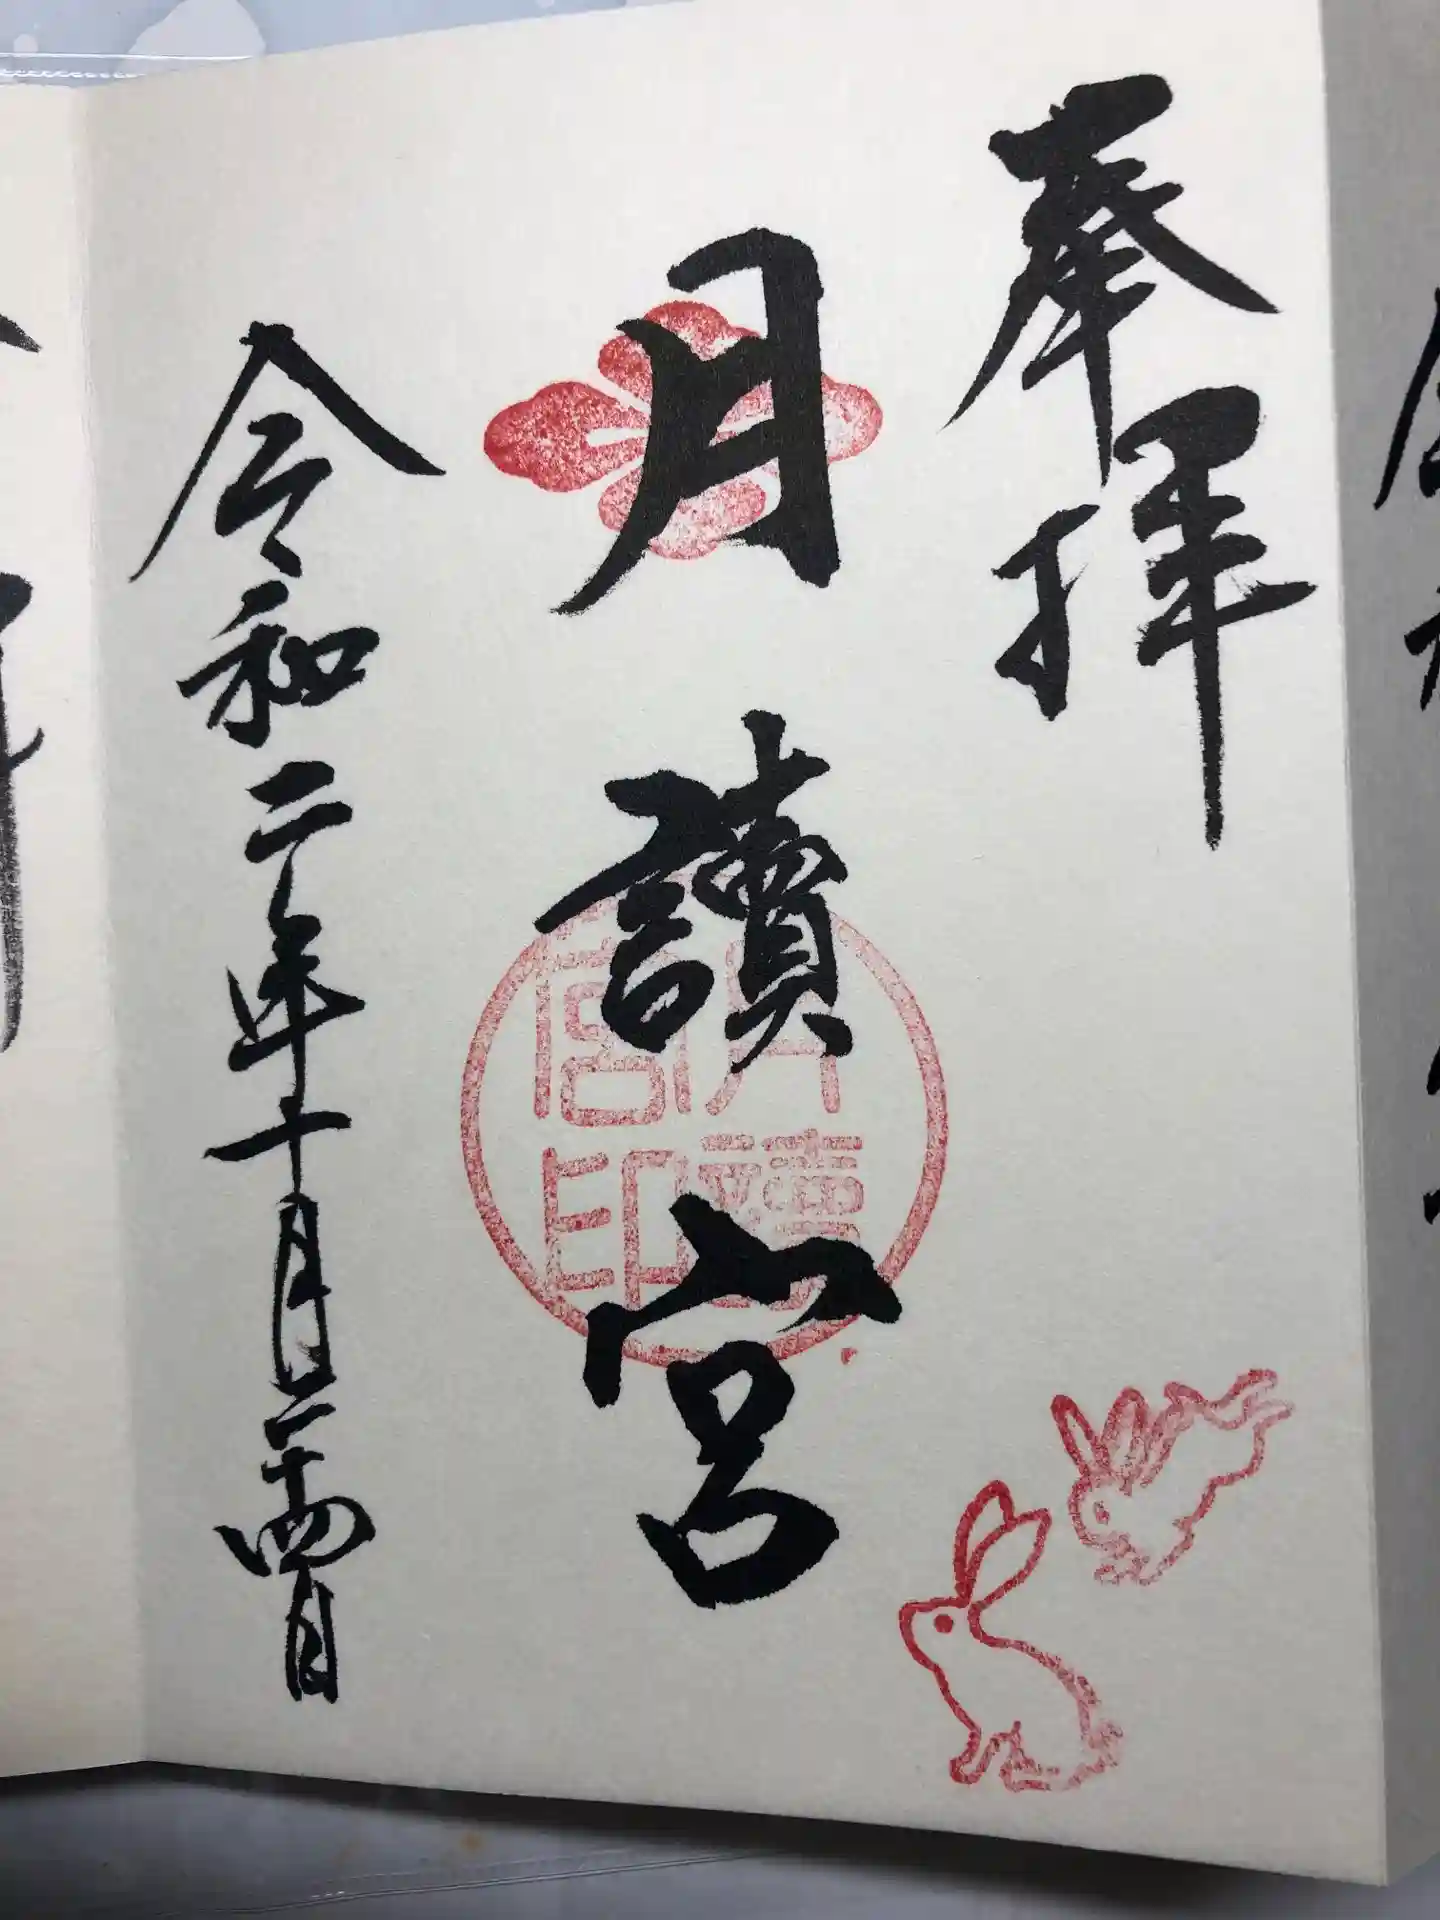 奉拝
月讀宮
月讀宮印
令和二年十月二十四日